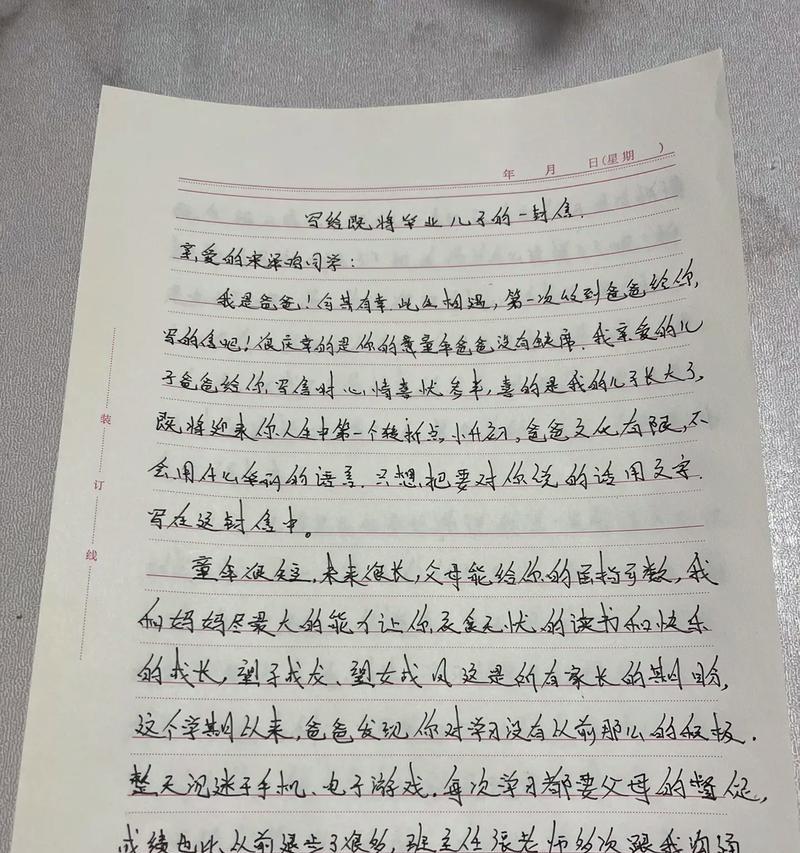 年 月 日(星期 )
写给既将毕业儿子的一封信.
亲爱的宋泽洵同学:
我是爸爸!何其有幸,此生相遇,第一次收到爸爸给你,
写的信吧!很庆幸的是你的童年爸爸没有缺席.我亲爱的儿
子爸爸给你写信时心情喜忧参半,喜的是我的儿子长大了,
既将迎来你人生中第一个转折点,小升初,爸爸文化有限,不
会用什么华丽的语言.只想把要对你说的话用文字.
写在这封信中。
童年很短,未来很长,父母能给你的屈指可数,我
和妈妈尽最大的能力让你衣食无忧的读书和快乐
的成长,望子成龙、望女成凤这是所有家长的期盼,
这个学期以来,爸爸发现你对学习没有从前那么的积极.
整天沉迷于手机、电子游戏.每次学习都要父母的督促,
成绩也比从前退步了很多,班主任张老师多次跟我沟通
装
订
线